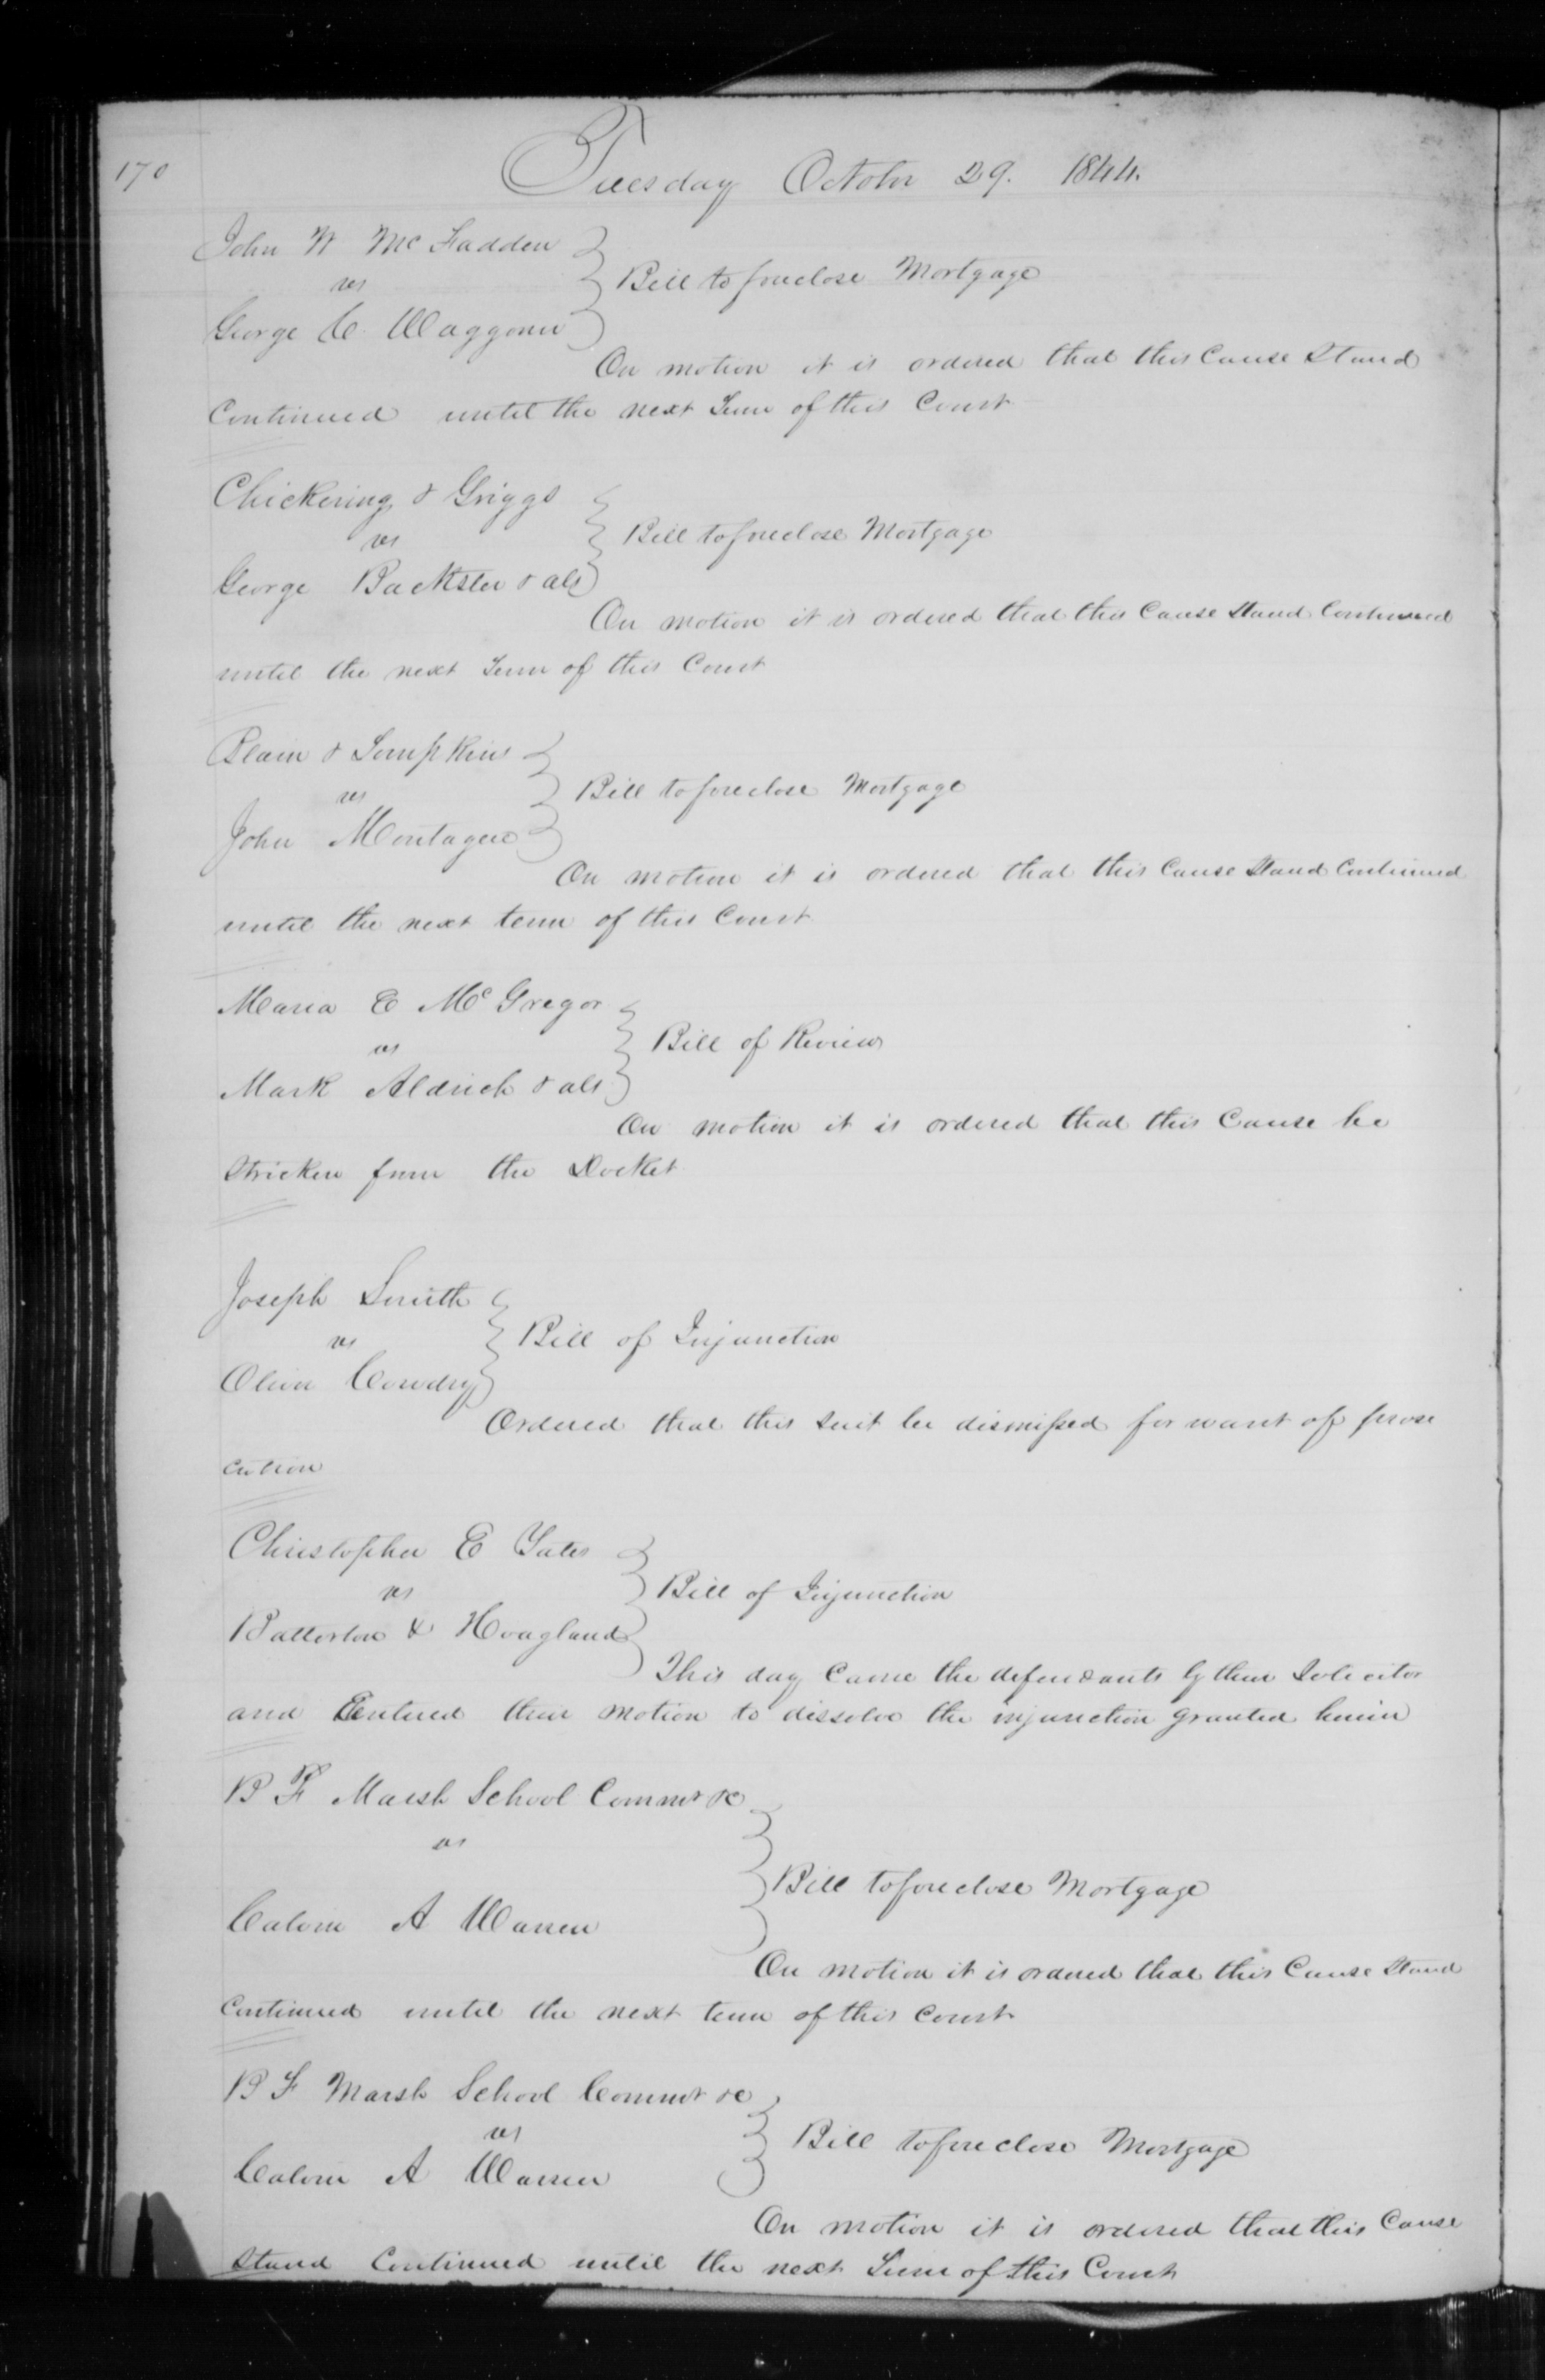 170
Tuesday October 29. 1844.
John W McFadden
vs
George C. Waggoner
Bill to foreclose Mortgage
On motion it is ordered that this Cause Stand
Continued until the next Term of this Court
Chickering & Griggs
vs
George Backster & als
Bill to foreclose Mortgage
On motion it is ordered that this Cause Stand Continued
until the next Term of this Court
Plain & Tompkins
vs
John Montague
Bill to foreclose Mortgage
On motion it is ordered that this Cause Stand Continued
until the next term of this Court
Maria E McGregor
vs
Mark Aldrich & als
Bill of Review
On motion it is ordered that this Cause be
Stricken from the Docket
Joseph Smith
vs
Oliver Cowdry
Bill of Injunction
Ordered that this suit be dismissed for want of prose
cution
Christopher E Yates
vs
& Hoagland
Bill of Injunction
This day Came the defendants by their Solicitor
and Entered their motion to dissolve the injunction granted herein
B F Marsh School Commr &c
vs
Calvin A Warren
Bill to foreclose Mortgage
On motion it is ordered that this Cause Stand
Continued until the next term of this Court
B F Marsh School Commr &c
vs
Calvin A Warren
Bill to foreclose Mortgage
On motion it is ordered that this Cause
Stand Continued until the next Term of this Court